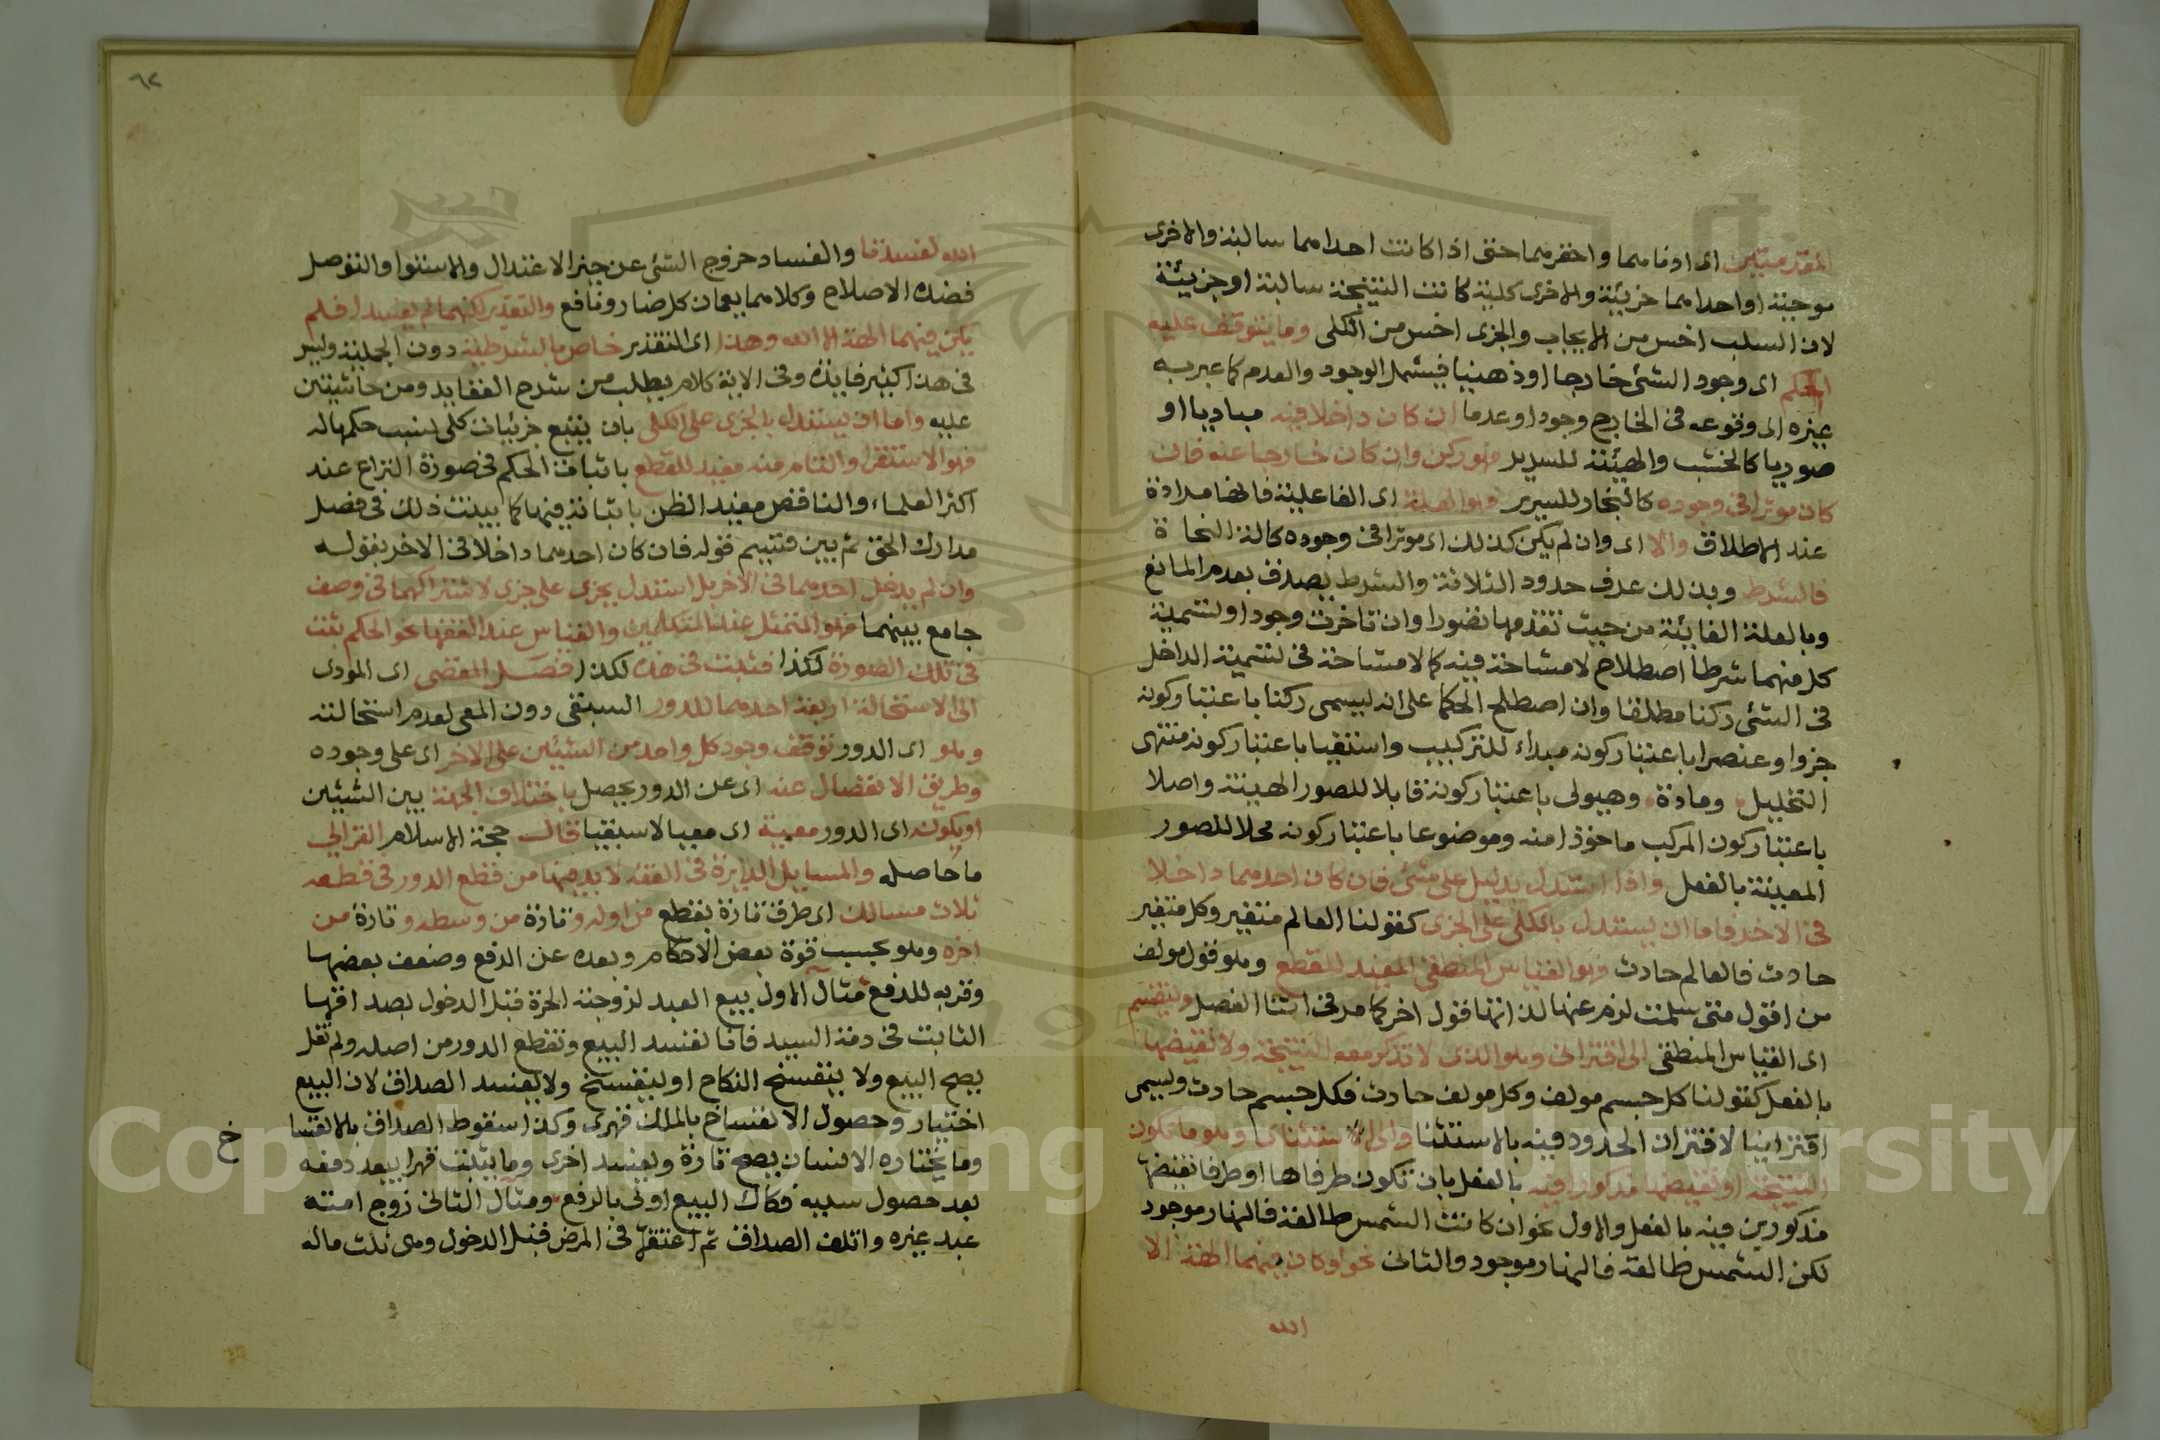 المقدمتين اى ادناهما واحقرهما حتى اذا كانت احداهما سالبة والاخرى
موجبة او احداهما جزئية والاخرى كلية كانت النتيجة سالبة او جزيئة
لان السلب اخس من الايجاب والجزى اخس من الكلى وما يتوقف عليه
الحكم اى وجود الشئ خارجا او ذهنيا فيشمل الوجود والعدم كما عبر به
غيره اى وقوعه فى الخارج وجودا وعدما ان كان داخلا فيه مباديا او
صوريا كالخشب والهيئة للسرير فهو ركن وان كان خارجا عنه فان
كان موثرا فى وجوده كالنجار للسرير فهو العلة اى الفاعلية فانها مرادة
عند الاطلاق والا اى وان لم يكن كذلك اى موثرا فى وجوده كالة النجارة
فالشرط وبذلك عرف حدود الثلاثة والشرط يصدق بعدم المانع
وبالعلة الغائية من حيث تقدمها تصورا وان تاخرت وجودا وتسمية
كل منهما شرطا اصطلاح لا مشاحة فيه كما لا مشاحة فى تسمية الداخل
فى الشئ ركنا مطلقا وان اصطلح الحكما على انه ليسمى ركنا باعتبار كونه
جزوا وعنصرا باعتبار كونه مبداء للتركيب واستقيا باعتبار كونه منتهى
التحليل ومادة وهيولى باعتبار كونه قابلا للصور الهيئة واصلا
باعتبار كون المركب ماخوذا منه وموضوعا باعتبار كونه محلا للصور
المعينة بالفعل واذا استدل بدليل على شئ فان كان احدهما داخلا
فى الاخر فاما ان يستدل بالكلى على الجزى كقولنا العالم متغير وكل متغير
حادث فالعالم حادث فهو القياس المنطقى المفيد للقطع وهو قول مولف
من اقول متى سلمت لزم عنها لذاتها قول اخر كما مر فى اثنا الفصل ولنقسم
اى القياس المنطقى الى اقترانى وهو الذى لا تذكر معه النتيجة ولا نقيضها
بالفعل كقولنا كل جسم مولف وكل مولف حادث فكل جسم حادث وليسمى
اقترانيا لاقتران الحدود فيه بالاستثنا والى الاستثنائى وهو ما تكون
النتيجة او نقيضها مذكورا فيه بالفعل بان تكون طرفاها او طرفا نقيضها
مذكورين فيه بالفعل والاول نحو ان كانت الشمس طالعة فالنهار موجود
لكن الشمس طالعة فالنهار موجود والثانى نحو لو كان فيهما الهة الا
الله
٦٢
الله لفسدتا والفساد خروج الشئ عن جيز الاعتدال والاستوا والتوصل
فضده الاصلاح وكلاهما يعمان كل ضار ونافع والتقدير لكنهما لم يفسدا فلم
يكن فيهما الهة الا الله وهذا اى التقدير خاص بالشرطية دون الجملية وليس
فى هذا كثير فايدة وفى الاية كلام يطلب من شرح العقايد ومن حاشيتين
عليه واما ان يستدل بالجزى على الكلى بان يتبع جزئيات كلى ليثبت حكمها له
فهو الاستقرا والتام منه مفيد للقطع باثبات الحكم فى صورة النزاع عند
اكثر العلماء والناقص مفيد الظن باثباته فيها كما بينت ذلك فى فصل
مدارك الحق ثم بين قسيم قوله فان كان احدهما داخلا فى الاخر بقوله
وان لم يدخل احدهما فى الاخر بل استدل بجزى على جزى لاشتراكهما فى وصف
جامع بينهما فهو التمثيل عند المتكلمين والقياس عند الفقها نحو الحكم ثبت
فى تلك الصورة لكذا فثبت فى هذه لكذا فصل المقضى اى المودى
الى الاستحالة اربعة احدهما للدور السبقى دون المعى لعدم استحالته
وهو اى الدور توقف وجود كل واحد من الشيئين على الاخر اى على وجوده
وطريق الانفصال عنه اى عن الدور يحصل باختلاف الجهة بين الشيئين
او بكونه اى الدور معية اى معيا لا سبقيا قال حجة الاسلام الغزالى
ما حاصله والمسايل الدايرة فى الفقه لا بد فيها من قطع الدور فى قطعه
ثلاث مسالك اى طرق تارة بقطع من اوله وتارة من وسطه وتارة من
اخره وهو بحسب قوة بعض الاحكام وبعده عن الدفع وضعف بعضها
وقربه للدفع مثال الاول بيع العبد لزوجته الحرة قبل الدخول بصداقها
الثابت فى ذمة السيد فانا نفسد البيع ونقطع الدور من اصله ولم نقل
يصح البيع ولا ينفسخ النكاح او ينفسخ ولا يفسد الصداق لان البيع
اختيار وحصول الانفساخ بالملك قهرى وكذا سقوط الصداق بالانفسا
خ
وما يختاره الانسان يصح تارة ويفسد اخرى وما يثبت قهرا يبعد دفعه
بعد حصول سببه فكان البيع اولى بالرفع ومثال الثانى زوج امته
عبد غيره واتلف الصداق ثم اعتقها فى المرض قبل الدخول وهى ثلث ماله